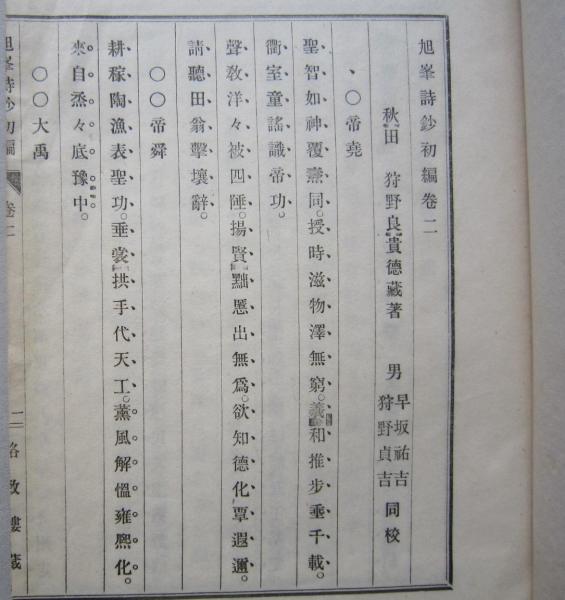 旭峯詩鈔初編卷二
秋田 狩野良貴德藏著 男 早坂祐吉 狩野貞吉 同校
、〇帝堯
聖智如神覆燾同。授時滋物澤無窮。羲和推步垂千載。
衢室童謠識帝功。
聲敎洋々被四陲。揚賢黜慝出無爲。欲知德化覃遐邇。
請聽田翁擊壤辭。
〇〇帝舜
耕稼陶漁表聖功。垂裳拱手代天工。薰風解慍雍熙化。
來自烝々底豫中。
〇〇大禹
旭峯詩鈔初編 卷二 二 格致樓藏